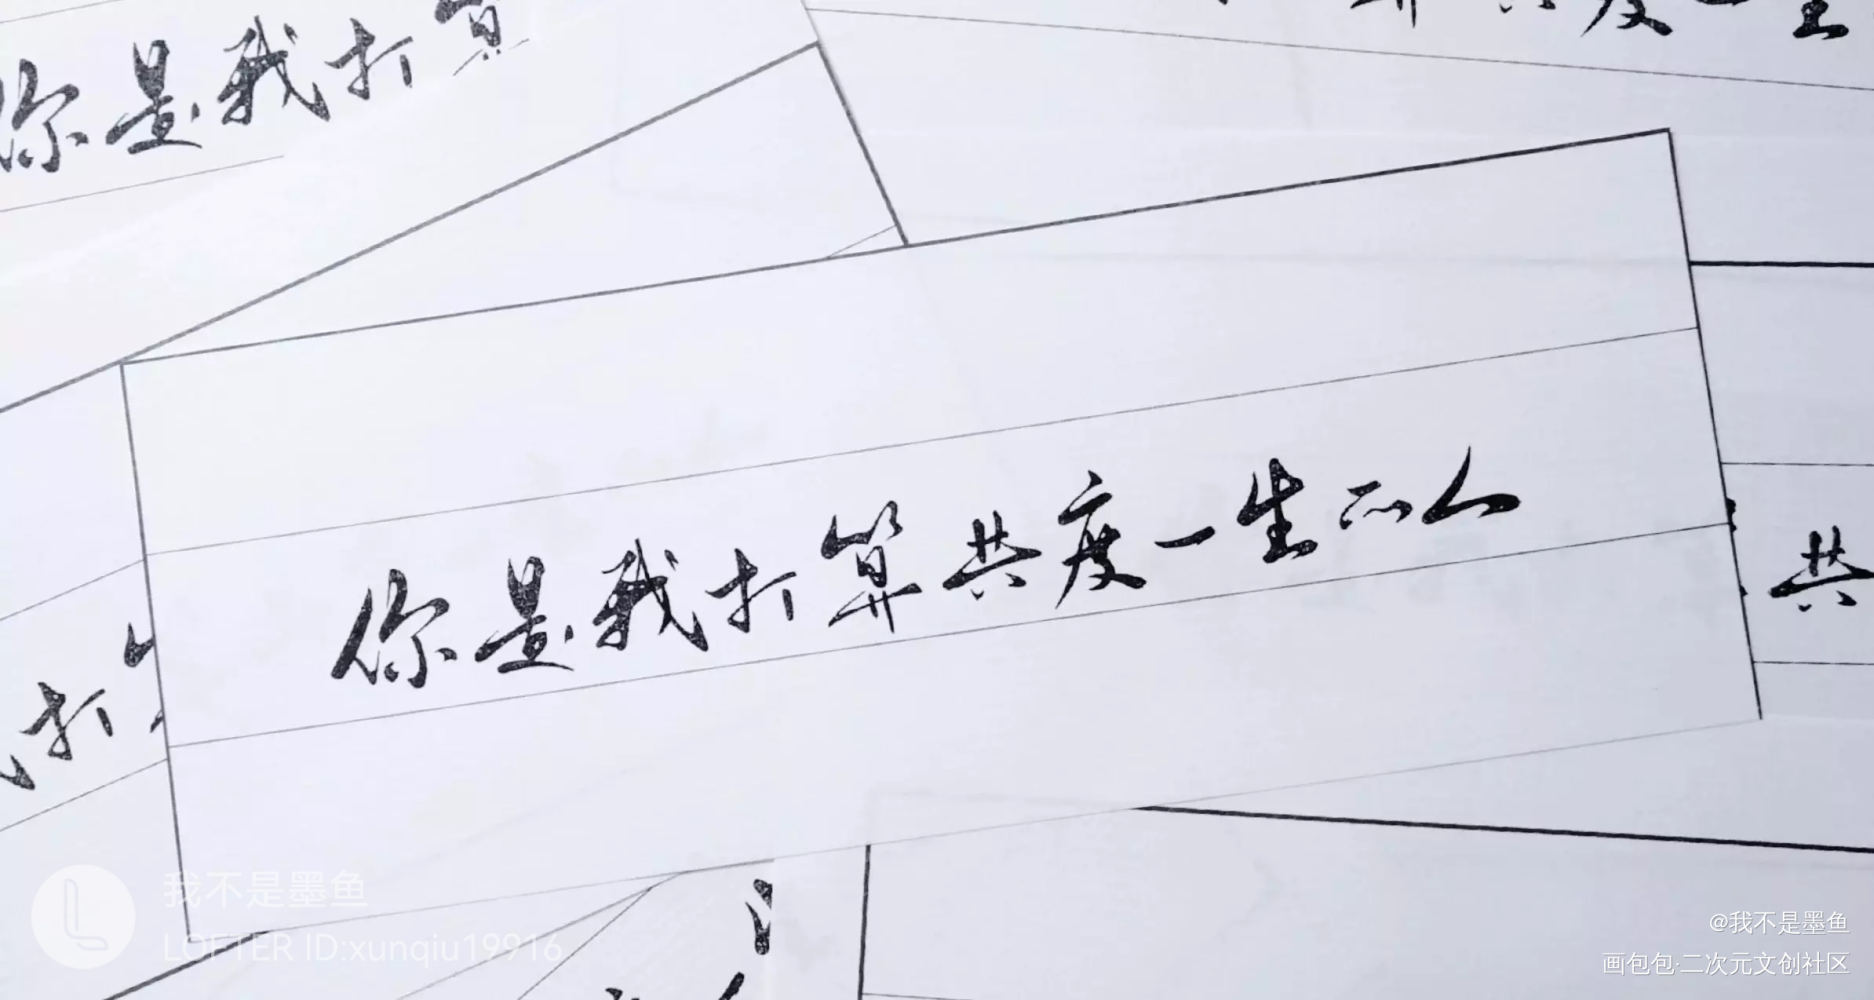 你是我打算
算共度一生
你是我打算共度一生的人
共
打
我不是墨鱼
LOFTER ID:xunqiu19916
@我不是墨鱼
画包包·二次元文创社区